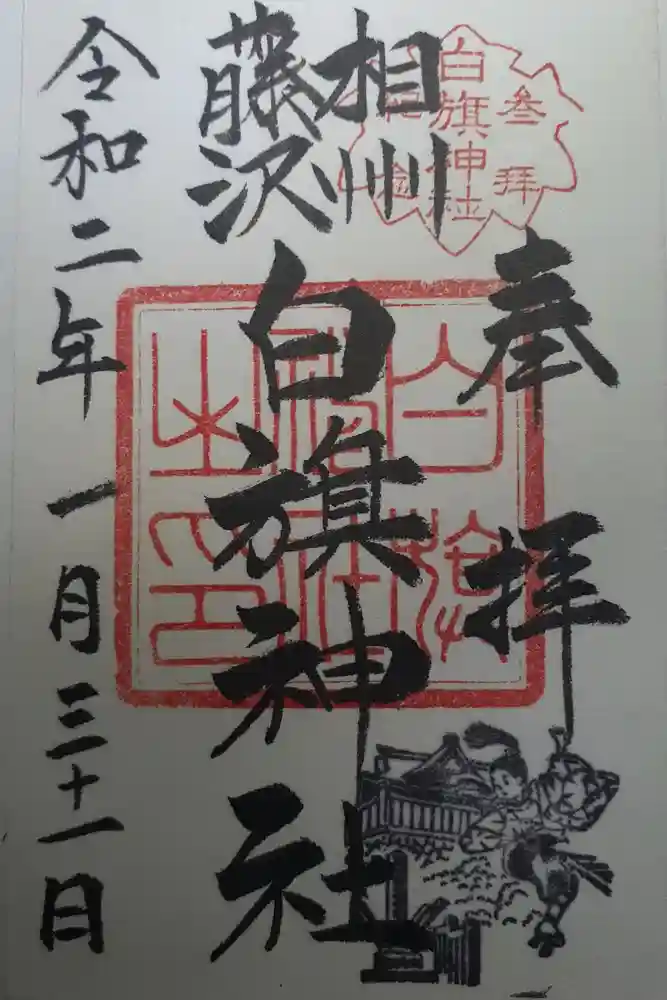 奉拝
叁拝
白旗神社
記念
相州
藤沢
白旗神社
白旗
神社
之印
令和二年一月三十一日